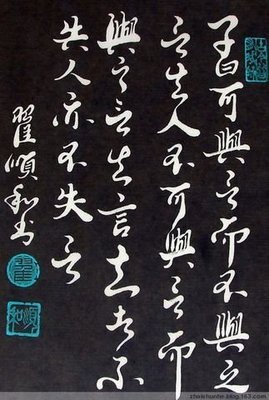 子曰可與言而不與之
言失人不可與言而
與之言失言知者不
失人亦不失言
翟順和书
翟
順和
zhaishunhe.blog.163.com